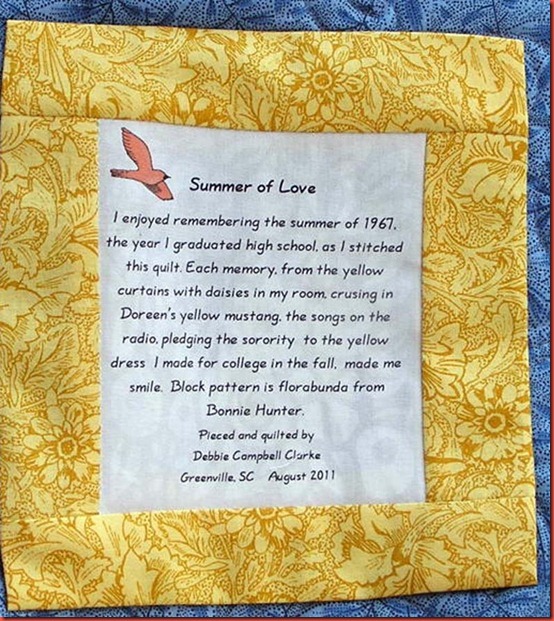 Summer of Love
I enjoyed remembering the summer of 1967,
the year I graduated high school, as I stitched
this quilt. Each memory, from the yellow
curtains with daisies in my room, crusing in
Doreen's yellow mustang, the songs on the
radio, pledging the sorority to the yellow
dress I made for college in the fall, made me
smile. Block pattern is florabunda from
Bonnie Hunter.
Pieced and quilted by
Debbie Campbell Clarke
Greenville, SC August 2011